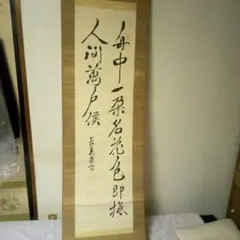 舟中一朶名花色即抵
人间萬戸侯